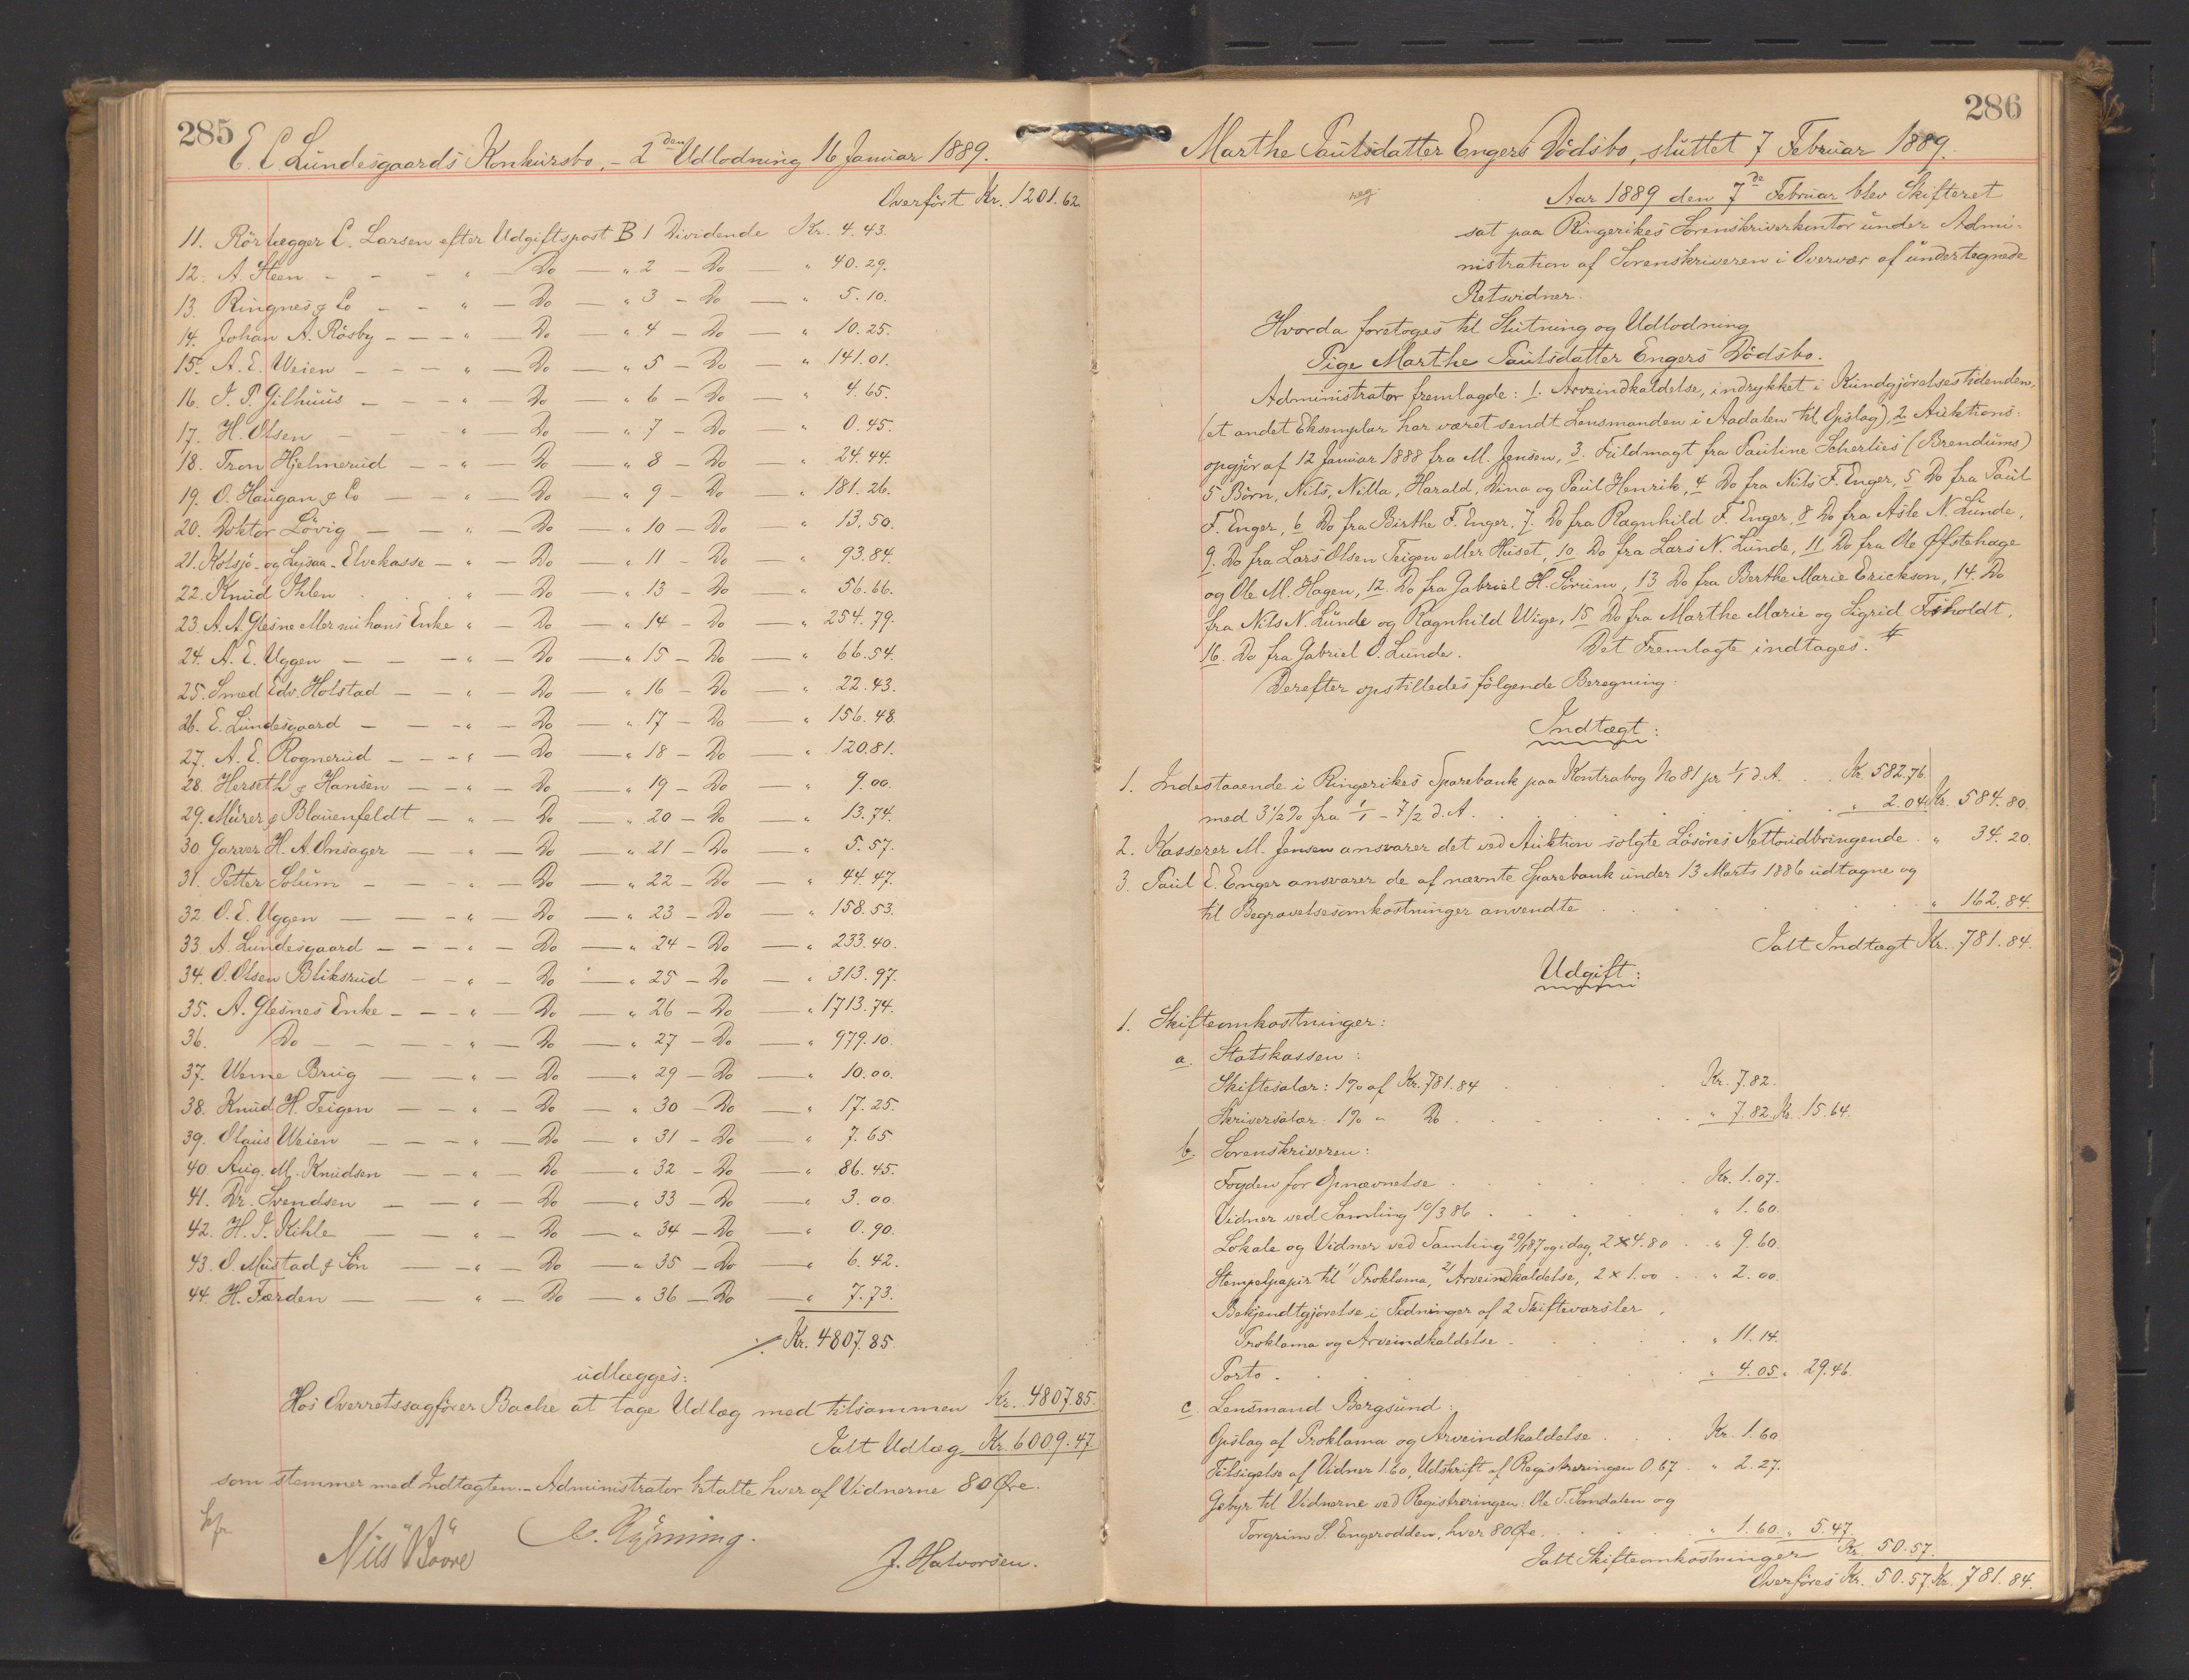 285
E. C. Lundesgaards Konkursbo, – 2den Udlodning 16 Januar 1889.
Overført Kr. 1201.62.
11. Rörlægger C. Larsen efter Udgiftspost B 1 Dividende Kr. 4.43.
12. A. Steen – – – " – Do – " 2 – Do – " 40.29.
13. Ringnes & Co – – " – Do – " 3 – Do – " 5.10.
14. Johan A. Rösby – – – " – Do – " 4 – Do – " 10.25.
15. A. E. Weien – – – " – Do – " 5 – Do – " 141.01.
16. J. P. Gilhuus – – – " – Do – " 6 – Do – " 4.65.
17. H. Olsen – – – " – Do – " 7 – Do – " 0.45.
18. Tron Hjelmerud – – " – Do – " 8 – Do – " 24.44.
19. O. Haugan & Co – – " – Do – " 9 – Do – " 181.26.
20. Doktor Lövig – – " – Do – " 10 – Do – " 13.50.
21. Holsjö- og Lysaa-Elvekasse – " – Do – " 11 – Do – " 93.84.
22. Knud Ihlen . . " – Do – " 13 – Do – " 56.66.
23. A. A. Glesne eller nu hans Enke " – Do – " 14 – Do – " 254.79.
24. A. E. Uggen – – – " – Do – " 15 – Do – " 66.54.
25. Smed Edv. Holstad – – " – Do – " 16 – Do – " 22.43.
26. E. Lundesgaard – – – " – Do – " 17 – Do – " 156.48.
27. A. E. Rognerud – – – " – Do – " 18 – Do – " 120.81.
28. Herseth & Hansen – – " – Do – " 19 – Do – " 9.00.
29. Murer Blauenfeldt – " – Do – " 20 – Do – " 13.74.
30 Garver H. A. Onsager – " – Do – " 21 – Do – " 5.57.
31. Petter Solum – – – " – Do – " 22 – Do – " 44.47.
32. O. E. Uggen – – – " – Do – " 23 – Do – " 158.53.
33 A. Lundesgaard – – – " – Do – " 24 – Do – " 233.40.
34. O. Olsen Bliksrud – – " – Do – " 25 – Do – " 313.97.
35. A. Glesnes Enke – – – " – Do – " 26 – Do – " 1713.74.
36. Do – – – – " – Do – " 27 – Do – " 979.10.
37. Weme Brug – – " – Do – " 29 – Do – " 10.00.
38. Knud H. Teigen – – " – Do – " 30 – Do – " 17.25.
39. Olaus Weien – – – " – Do – " 31 – Do – " 7.65.
40. Aug. M. Knudsen – – " – Do – " 32 – Do – " 86.45.
41. Dr. Svendsen – – " – Do – " 33 – Do – " 3.00.
42. H. J. Kihle – – " – Do – " 34 – Do – " 0.90.
43. O. Mustad & Sön – – " – Do – " 35 – Do – " 6.42.
44. H. Færden – – " – Do – " 36 – Do – " 7.73.
⁒ Kr. 4807.85
udlægges:
Hos Overretssagförer Bache at tage Udlæg med tilsammen Kr. 4807.85.
Ialt Udlæg Kr. 6009.47.
som stemmer med Indtægten. – Administrator betalte hver af Vidnerne 80 Øre.
Nils Boore
J. Halvorsen.
286
Marthe Paulsdatter Engers Dödsbo, sluttet 7 Februar 1889.
Aar 1889 den 7de Februar blev Skifteret
sat paa Ringerikes Sorenskriverkontor under Admi-
nistration af Sorenskriveren i Overvær af undertegnede
Retsvidner.
Hvorda foretoges til Slutning og Udlodning
Pige Marthe Paulsdatter Engers Dödsbo.
Administrator fremlagde: 1. Arveindkaldelse, indrykket i Kundgjörelsestidenden,
(et andet Eksemplar har været sendt Lensmanden i Aadalen til Opslag), 2. Auktions-
opgjör af 12 Januar 1888 fra M. Jensen, 3. Fuldmagt fra Pauline Scherlies (Brendums)
5 Börn, Nils, Nilla, Harald, Dina og Paul Henrik, 4 Do fra Nils F. Enger, 5 Do fra Paul
F. Enger, 6. Do fra Birthe F. Enger, 7. Do fra Ragnhild F. Enger, 8 Do fra Asle N. Lunde,
9. Do fra Lars Olsen Teigen eller Huset, 10 Do fra Lars N. Lunde, 11 Do fra Ole Øfstehage
og Ole M. Hagen, 12. Do fra Gabriel H. Sörum, 13 Do fra Berthe Marie Erickson, 14. Do
fra Nils N. Lunde og Ragnhild Wige, 15 Do fra Marthe Marie og Sigrid Fosholdt,
16. Do fra Gabriel O. Lunde. Det Fremlagte indtages.
Derefter opstilledes fölgende Beregning:
Indtægt:
1. Indestaaende i Ringerikes Sparebank paa Kontrabog No 81 pr 1/1 d. A. . . Kr. 582.76.
med 3 1/2 % fra 1/1 – 7/2 d. A. . . . . . " 2.04. Kr. 584.80.
2. Kasserer M. Jensen ansvarer det ved Auktion solgte Lösöres Nettoudbringende . " 34.20.
3. Paul E. Enger ansvarer de af nævnte Sparebank under 13 Marts 1886 udtagne og
til Begravelsesomkostninger anvendte . . . . . " 162.84.
Ialt Indtægt Kr. 781.84.
Udgift:
1. Skifteomkostninger:
a. Statskassen:
Skiftesalær: 1% af Kr. 781.84 . . . Kr. 7.82.
Skriversalær: 1% " Do . . . . " 7.82. Kr. 15.64.
b. Sorenskriveren:
Fogden for Opnævnelse . . . . Kr. 1.07.
Vidner ved Samling 10/3 86 . . . . " 1.60.
Lokale og Vidner ved Samling 29/1 87 og idag, 2 x 4.80 . " 9.60.
Stempelpapir til 1/ Proklama, 2/ Arveindkaldelse, 2 x 1.00 . . " 2.00.
Bekjendtgjörelse i Tidninger af 2 Skiftevarsler,
Proklama og Arveindkaldelse . . . . " 11.14.
Porto . . . . . " 4.05. " 29.46.
c. Lensmand Bergsund:
Opslag af Proklama og Arveindkaldelse . . . Kr. 1.60
Tilsigelse af Vidner 1.60, Udskrift af Registreringen 0.67 . " 2.27.
Gebyr til Vidnerne ved Registreringen: Ole T. Somdalen og
Torgrim S. Engerodden, hver 80 Øre. . . . " 1.60. " 5.47.
Ialt Skifteomkostninger Kr. 50.57.
Overföres Kr. 50.57. Kr. 781.84.